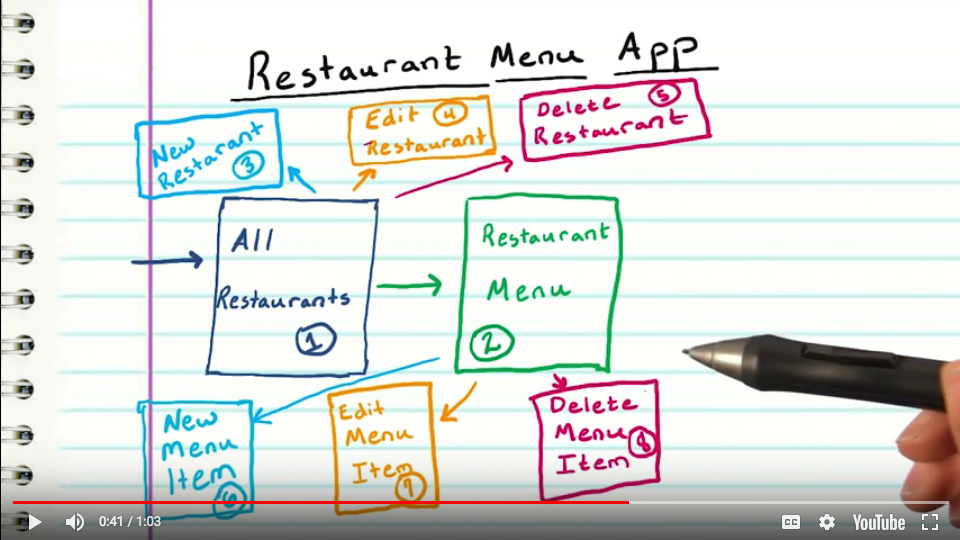 Restaurant Menu App
New
Restarant
3
Edit 4
Restaurant
Delete 5
Restaurant
All
Restaurants
1
Restaurant
Menu
2
New
Menu
Item
6
Edit
Menu
Item
7
Delete
Menu
Item
8
0:41 / 1:03
CC
YouTube